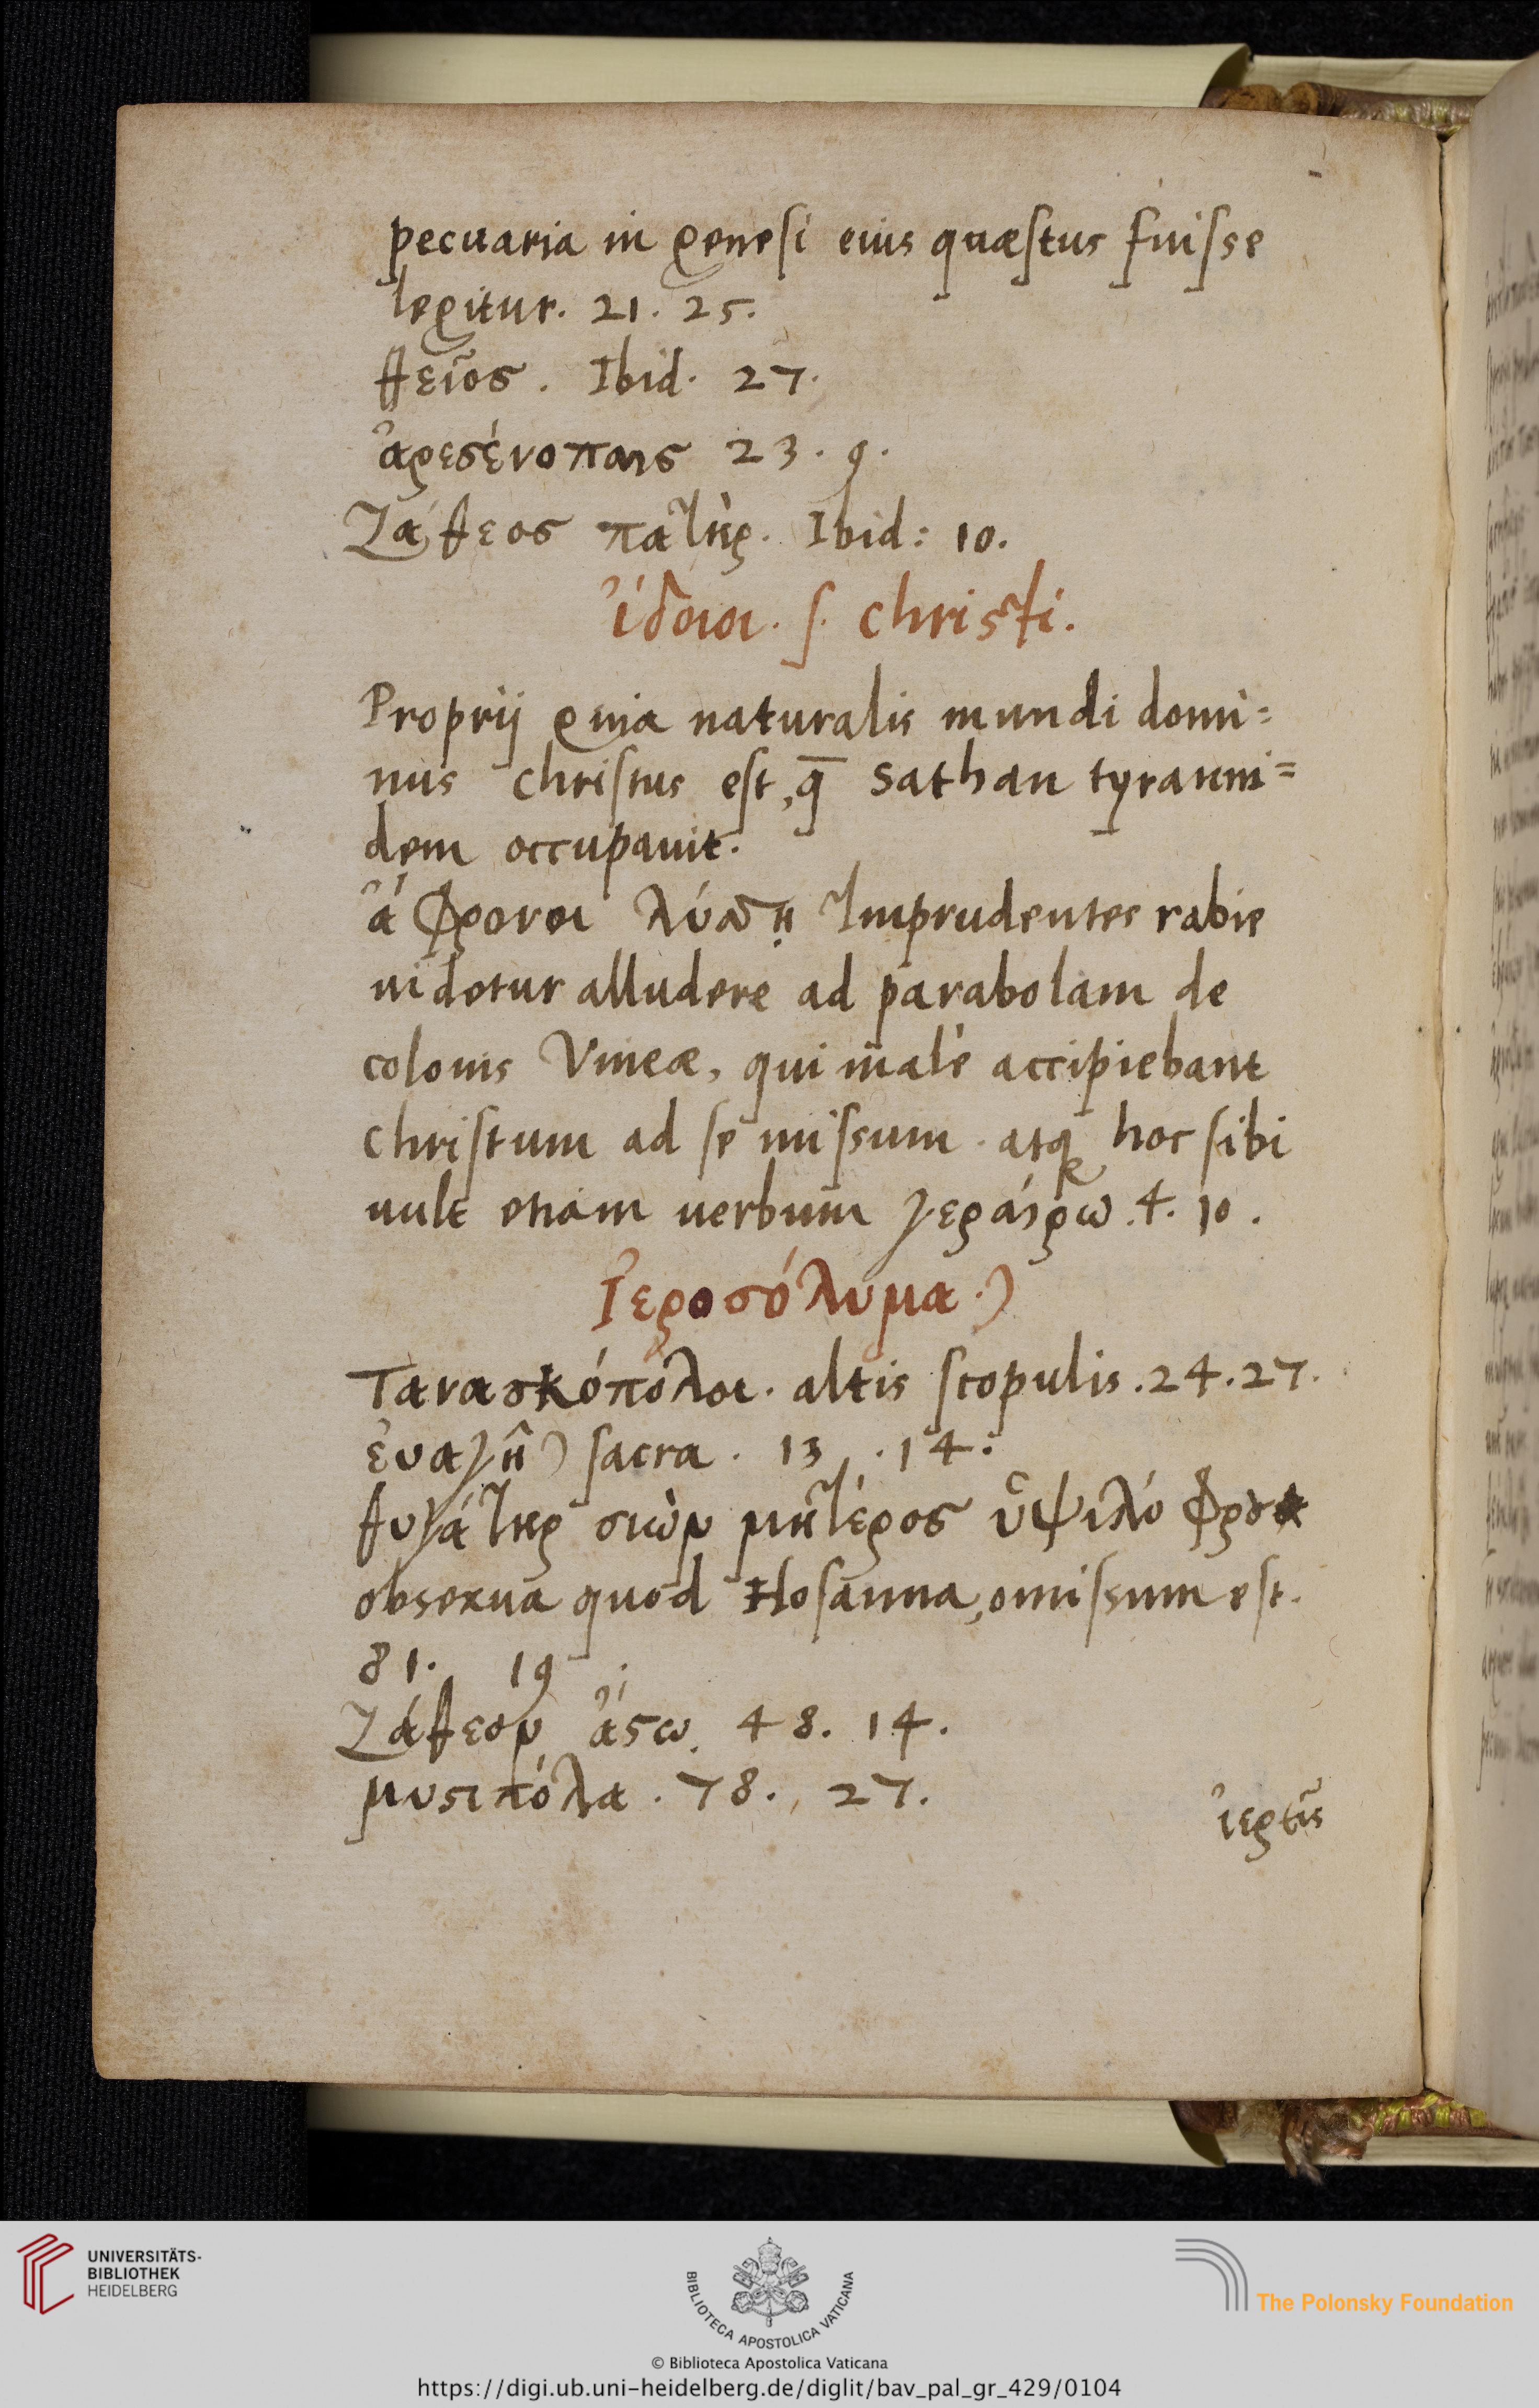 pecuaria in genesi eius quæstus fuisse
legitur. 21. 25.
θεῖος. Ibid. 27.
ἀρεσένοπαις 23. 9.
Ζάθεος πατὴρ. Ibid: 10.
ἴδοιοι. s. christi.
Proprij quia naturalis mundi domi=
nus christus est, q̄ sathan tyranni=
dem occupauit.
ἄφρονοι λύσσῃ Imprudentes rabie
uidetur alludere ad parabolam de
colonis Vineæ, qui malè accipiebant
christum ad se missum. atq hoc sibi
uult etiam uerbum γεραίρω. 4. 10.
Ἱεροσόλυμα.)
Τανασκόπολοι. altis scopulis. 24. 27.
εὐαγῆ) sacra. 13. 14:
θυγάτηρ σιὼν μητέρος ὑψιλό
obserua quod Hosanna, omissum est.
81. 19.
Ζάθεον ἄστω. 48. 14.
μυστιπόλα. 78. 27.
ἱερεῖς
UNIVERSITÄTS-
BIBLIOTHEK
HEIDELBERG
BIBLIOTECA APOSTOLICA VATICANA
The Polonsky Foundation
© Biblioteca Apostolica Vaticana
https://digi.ub.uni-heidelberg.de/diglit/bav_pal_gr_429/0104